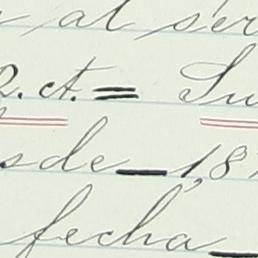 al ser
R. ct. = Su
sde — 1,87
fecha —